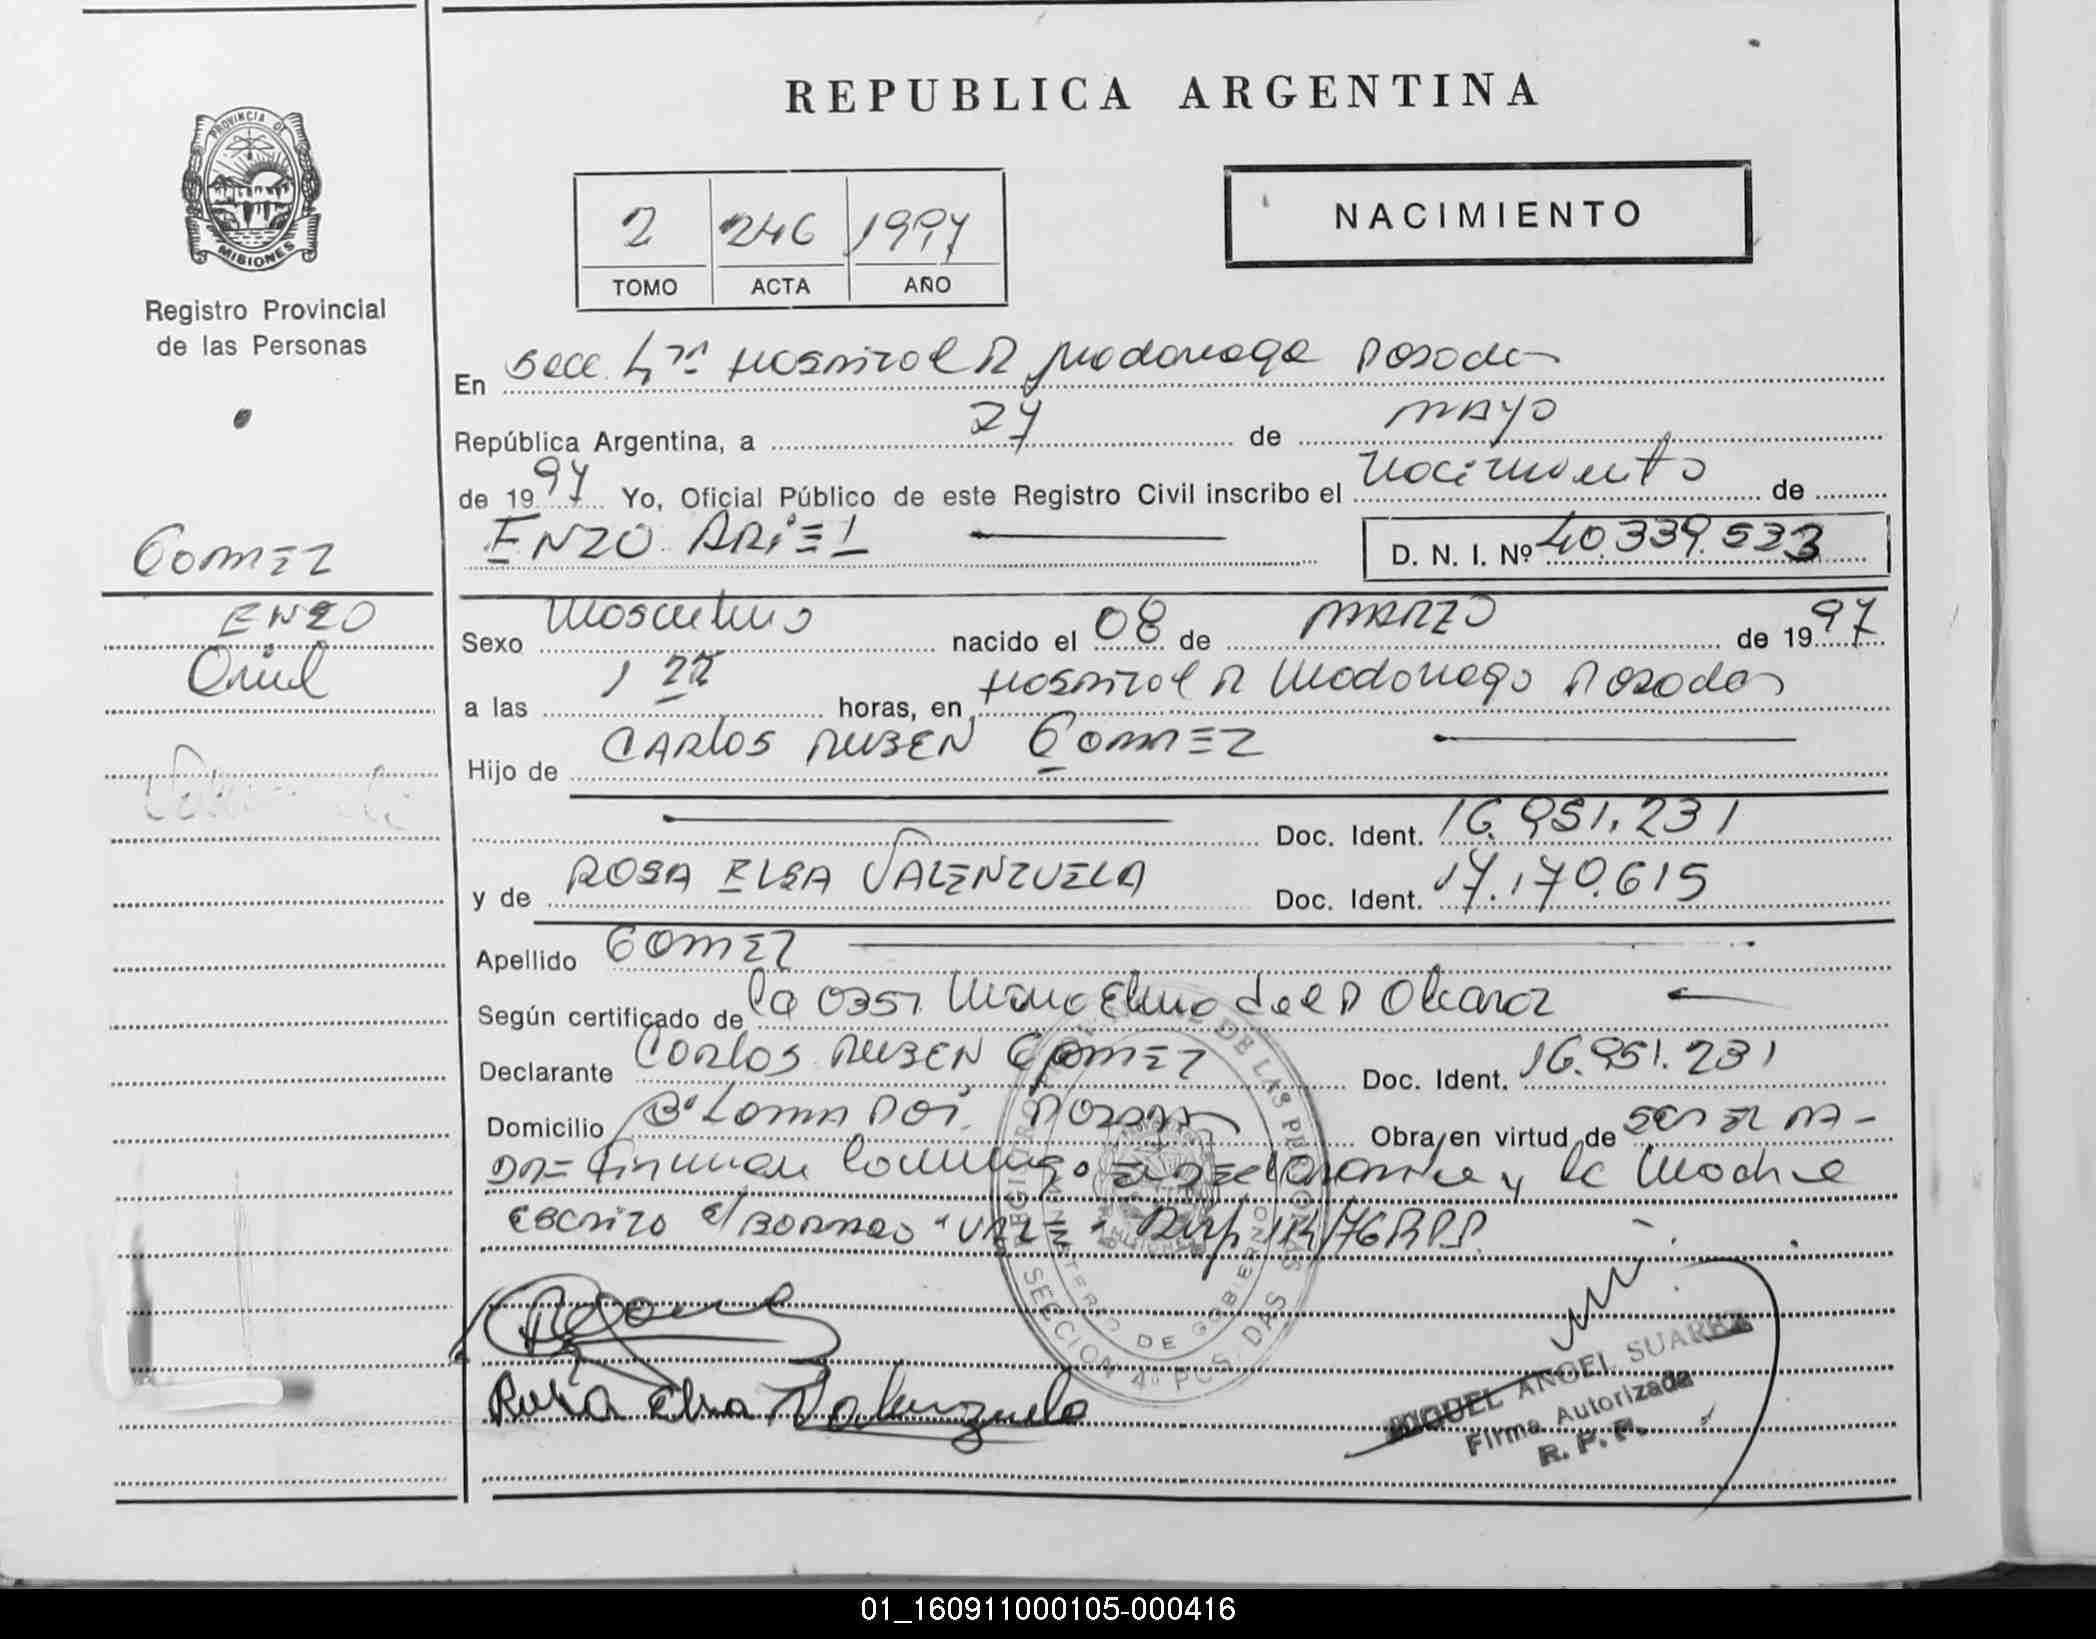 REPUBLICA ARGENTINA
PROVINCIA DE
MISIONES
Registro Provincial
de las Personas
2 246 1997
TOMO ACTA AÑO
NACIMIENTO
En Secc 4ª Hospital R Madariaga Posadas
República Argentina, a 27 de MAYO
de 1997 Yo, Oficial Público de este Registro Civil inscribo el Nacimiento de
ENZO ARIEL D. N. I. Nº 40.339.533
GOMEZ
ENZO
Ariel
Sexo Masculino nacido el 08 de MARZO de 1997
a las 1 22 horas, en Hospital R Madariaga Posadas
Hijo de CARLOS RUBEN GOMEZ
Doc. Ident. 16.951.231
y de ROSA ELSA VALENZUELA Doc. Ident. 17.170.615
Apellido GOMEZ
Según certificado de la Obst. del
Declarante CARLOS RUBEN GOMEZ Doc. Ident. 16.951.231
Domicilio Bº LOMA POI. POSADAS Obra en virtud de SER EL PA-
DRE Firman conmigo el Declarante y la Madre
ESCRITO s/BORRADO "VALE" Disp 114/76 RPP.
Rosa Elsa Valenzuela
REGISTRO DE LAS PERSONAS
MINISTERIO DE GOBIERNO
SECCION 4ª POSADAS
MIGUEL ANGEL SUAREZ
Firma Autorizada
R. P. P.
01_160911000105-000416